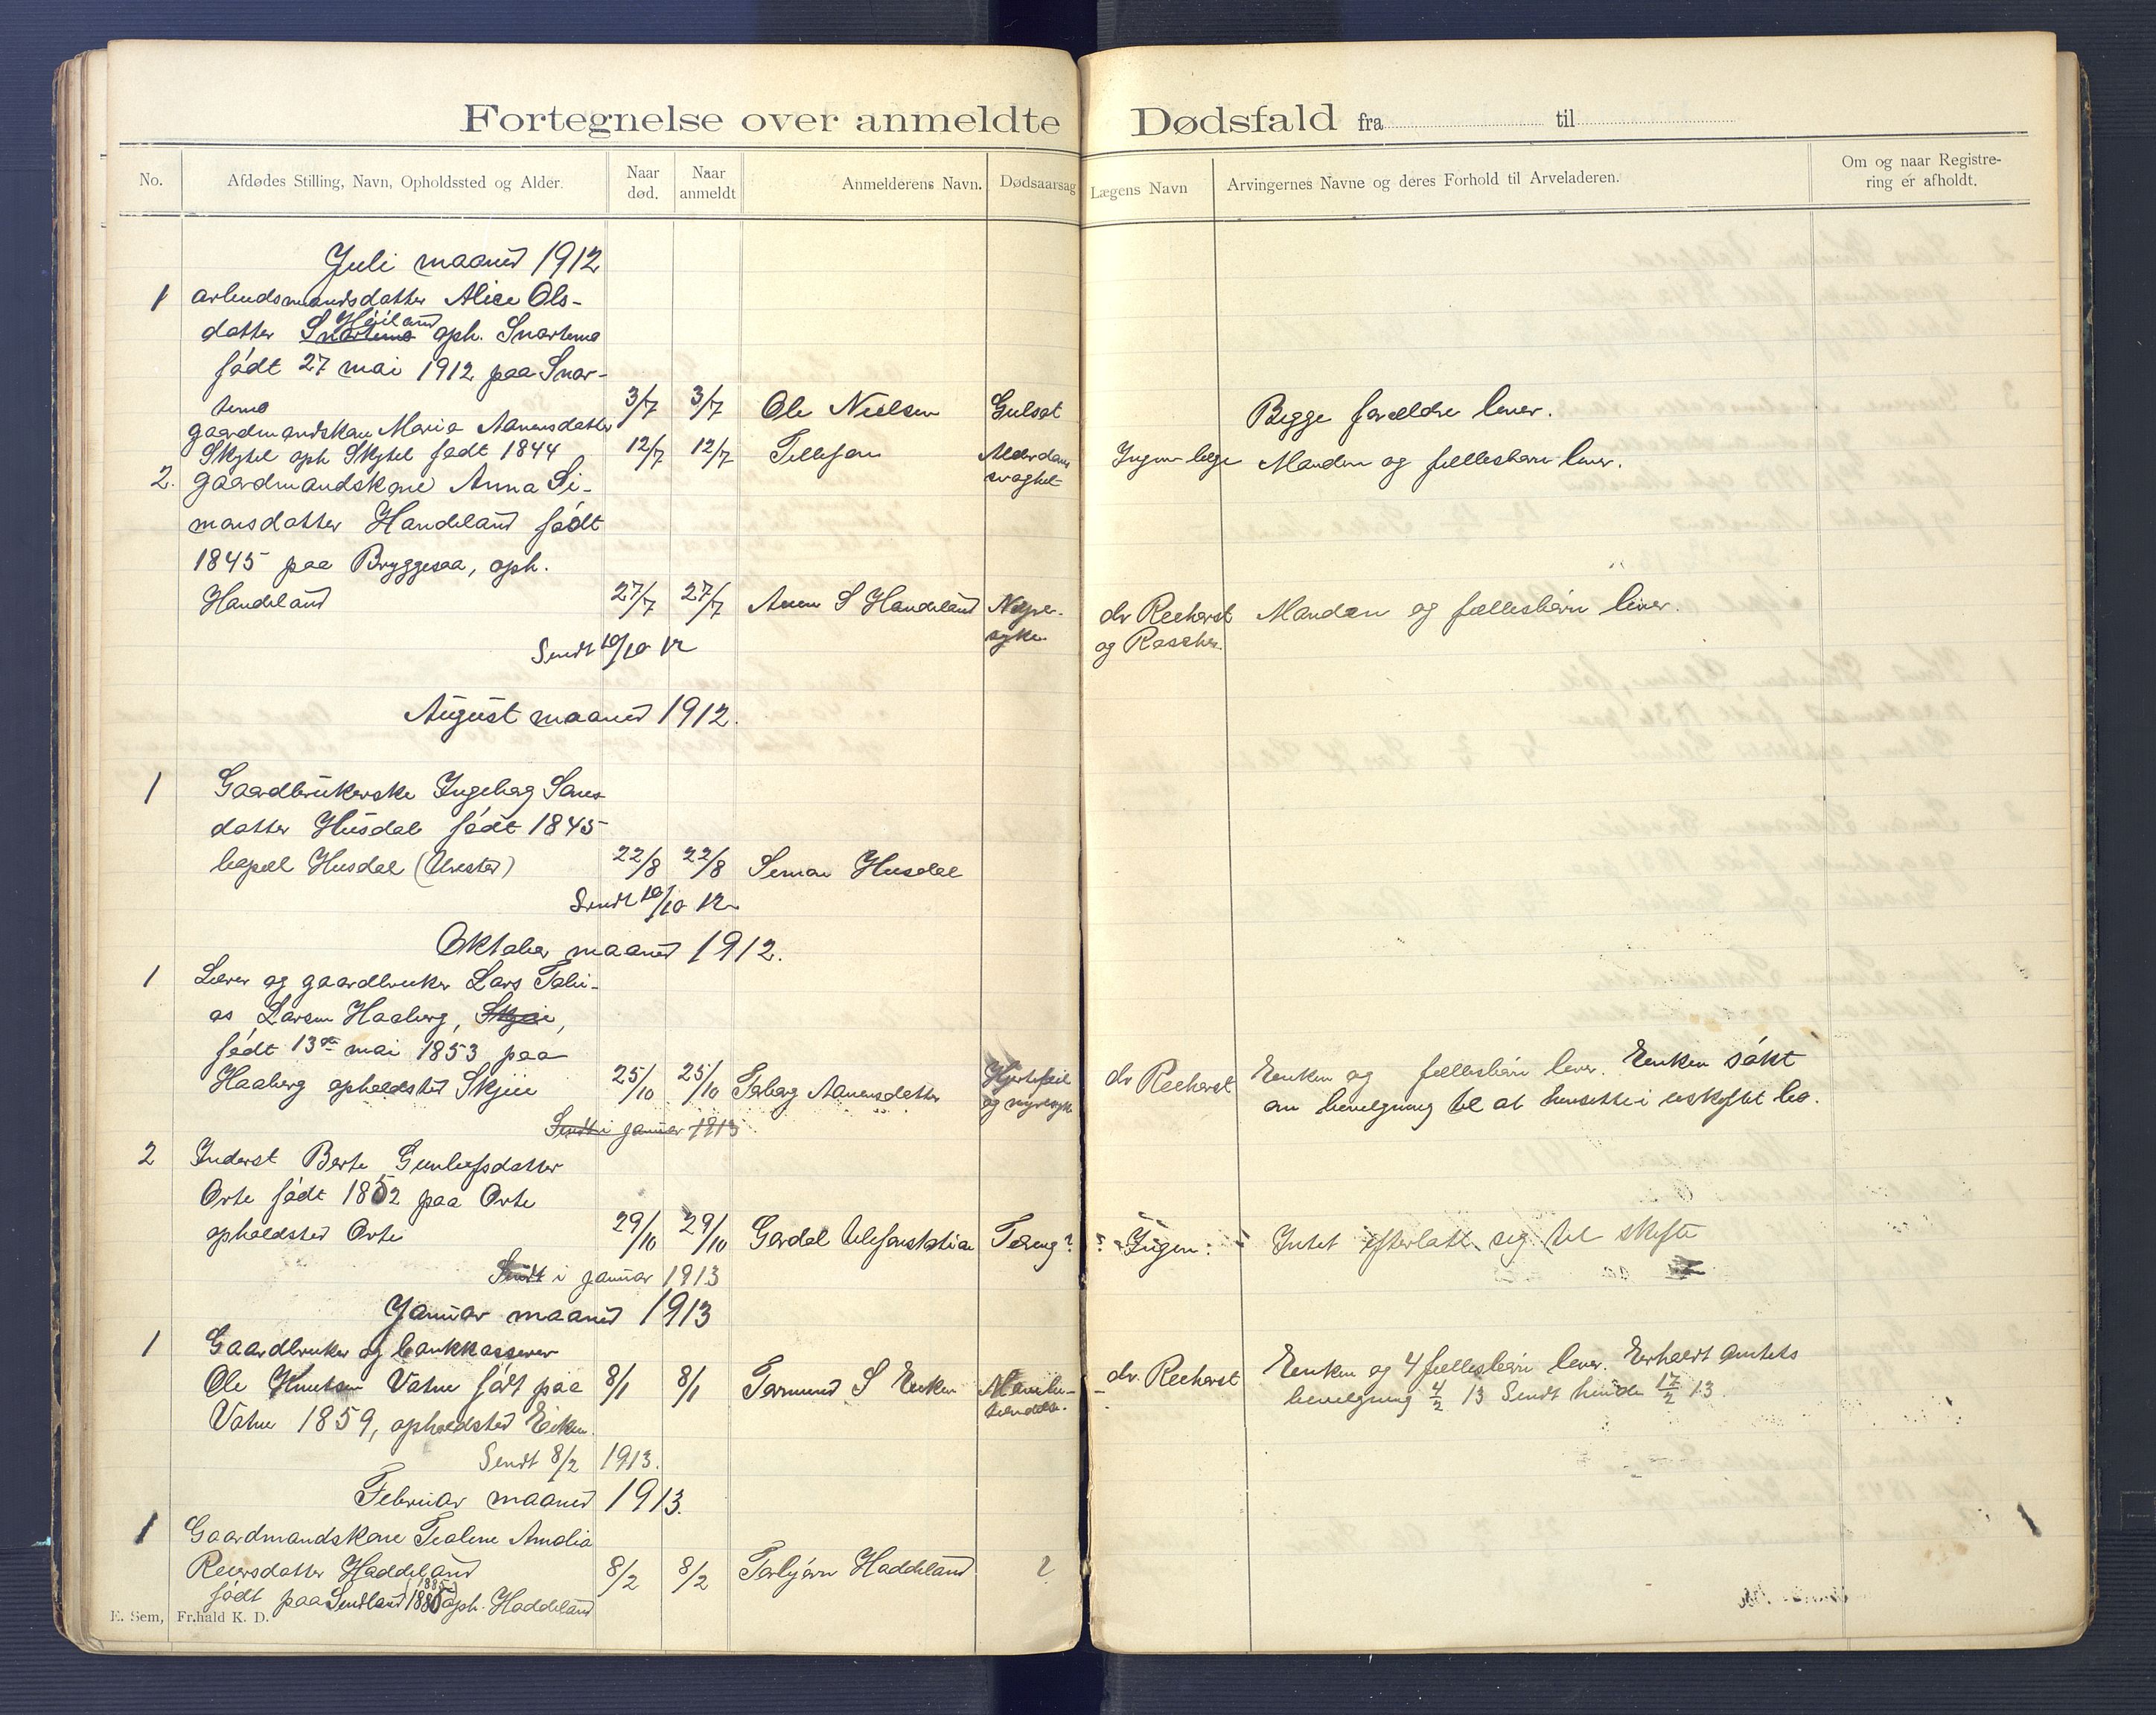 Fortegnelse over anmeldte Dødsfald fra til
No. Afdødes Stilling, Navn, Opholdssted og Alder. Naar død. Naar anmeldt Anmelderens Navn. Dødsaarsag Lægens Navn Arvingernes Navne og deres Forhold til Arveladeren. Om og naar Registrering er afholdt.
Juli maaned 1912
1 arbeidsmandsdatter Alice Ols-
Høiland
datter Snartemo oph. Snartemo
født 27 mai 1912 paa Snar-
temo 3/7 3/7 Ole Nielsen Gulsot Begge forældre lever.
gaardmandskone Maria Aanensdatter
Skytel oph Skytel født 1844 12/7 12/7 Tellefsen Alderdoms Ingen læge Manden og fællesbørn lever.
svaghet
2. gaardmandskone Anna Si-
monsdatter Handeland født
1845 paa Bryggesaa, oph.
Handeland 27/7 27/7 Anen S Handeland dr Reehorst Manden og fællesbørn lever.
syke og
Sendt 10/10 12
August maaned 1912.
1 Gaardbrukerske Ingeborg
datter Husdal født 1845
bopæl Husdal 22/8 22/8 Simon Husdal
Sendt 10/10 12
Oktober maaned 1912.
1 Lærer og gaardbruker Lars Tobi-
as Larsen Haaberg, Skjeie,
født 13de mai 1853 paa
Haaberg opholdsted Skjeie 25/10 25/10 Torborg Aanensdatter Hjertefeil dr Reehorst Enken og fællesbørn lever. Enken søkt
og nyresyk om bevilgning til at hensitte i uskiftet bo.
Sendt i januar 1913
2 Inderst Berte Gunleifsdatter
Orte født 1852 paa Orte
opholdsted Orte 29/10 29/10 Tæring? ? Ingen. Intet efterlatt sig til skifte
Sendt i januar 1913
Januar maaned 1913
1 Gaardbruker og bankkasserer
Ole Knutsen Vatne født paa 8/1 8/1 Tormund S Eeken dr. Reehorst Enken og 4 fællesbørn lever. Erholdt amtets
bevilgning 4/2 13 Sendt hende 17/2 13.
Vatne 1859, opholdsted Eeken.
Sendt 8/2 1913.
Februar maaned 1913.
1 Gaardmandskone Tealene Amalia
Reiersdatter Haddeland 8/2 8/2 Torbjørn Haddeland ?
(1885)
født paa Sindland 1885 oph. Haddeland
E. Sem, Fr.hald K. D.